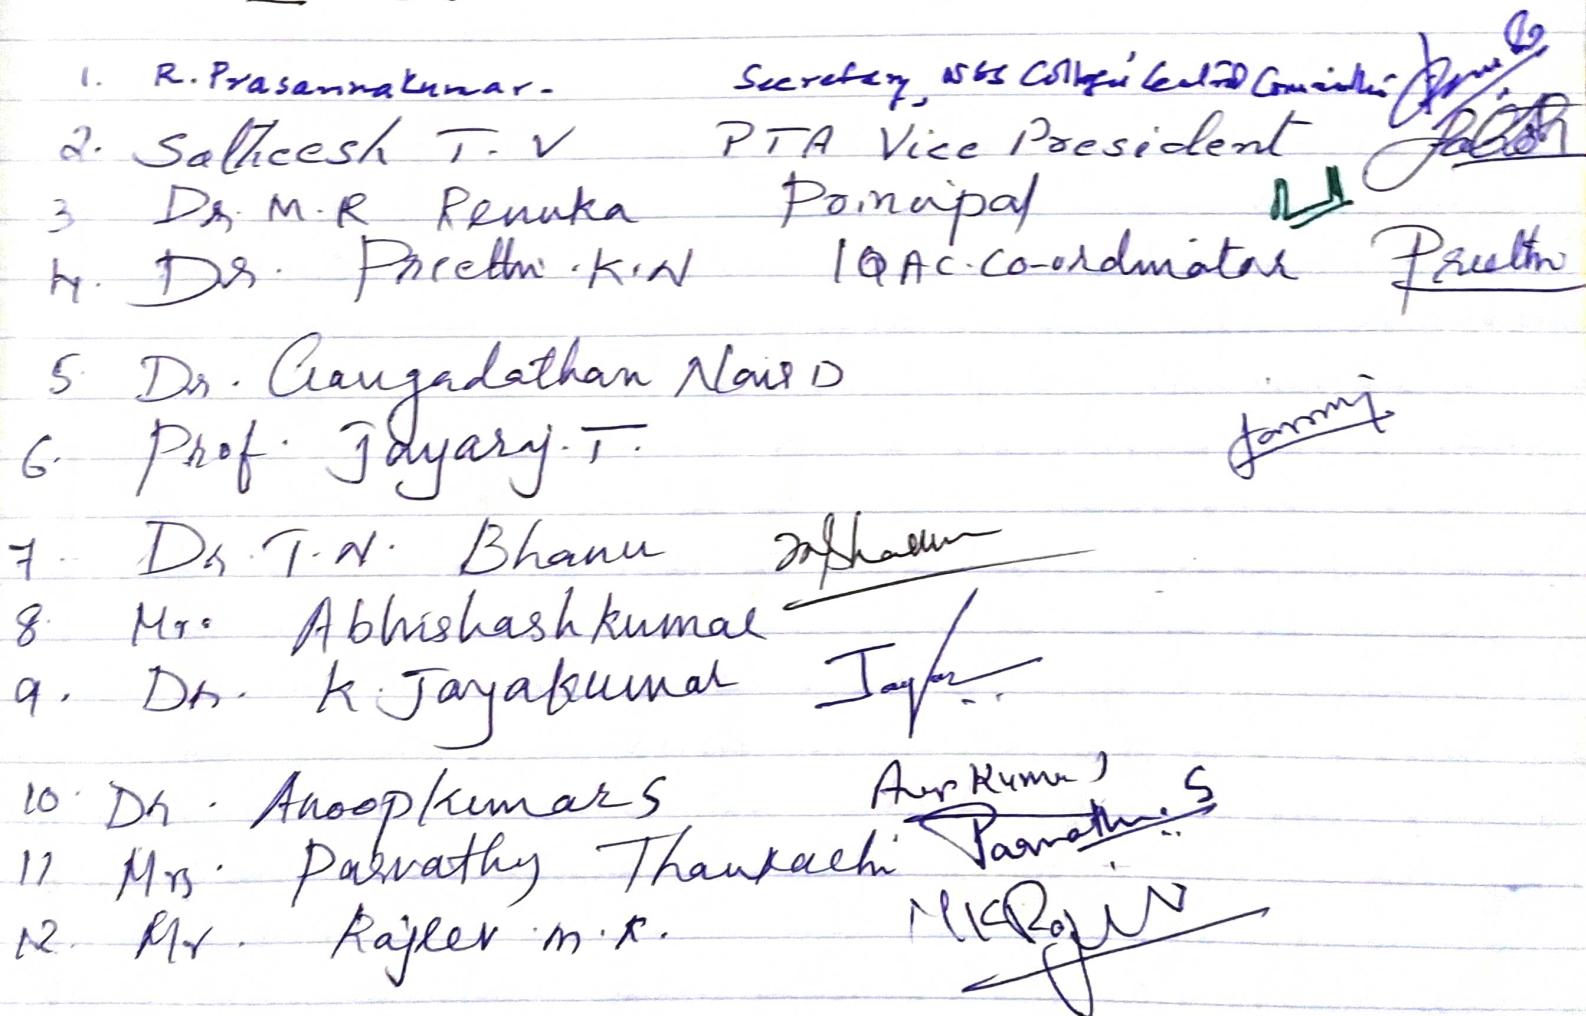 1. R. Prasannakumar. Secretary, NSS College Central Committee
2. Satheesh T. V PTA Vice President
3 Dr. M. R Renuka Principal
4. Dr. Preethi . K. N IQAC. Co-ordinator Preethi
5. Dr. Gangadathan Nair D
6. Prof. Jayaraj. T.
7. Dr. T. N. Bhanu
8. Mr. Abhishashkumar
9. Dr. K. Jayakumar
10. Dr. Anoopkumar S
11 Mrs. Parvathy Thankachi
12. Mr. Rajeev. M. K. MKRajeev